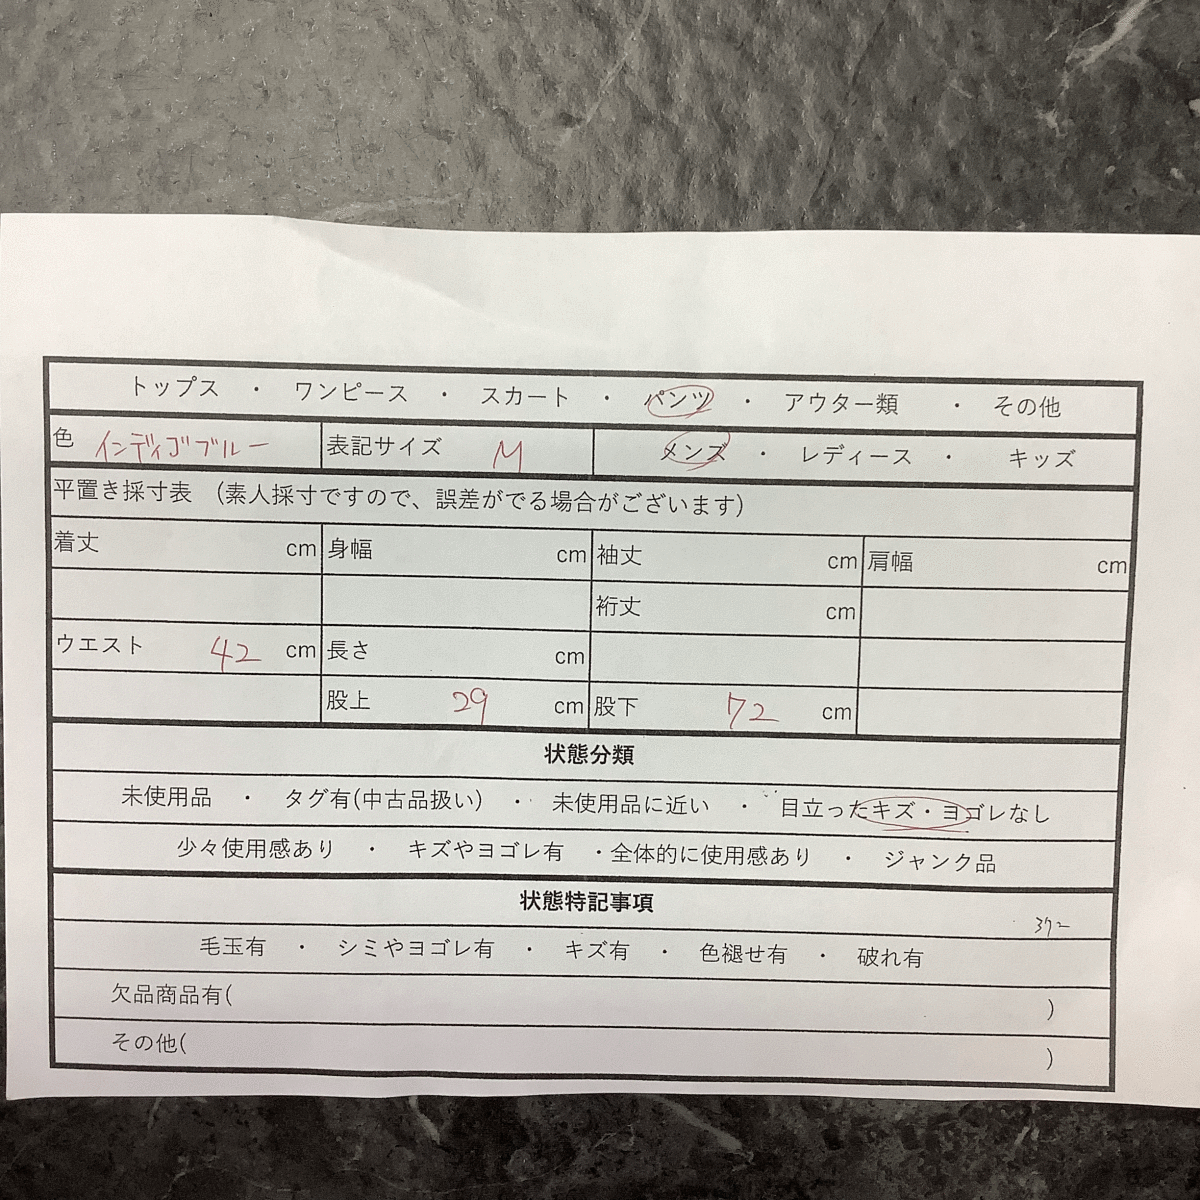 トップス ・ ワンピース ・ スカート ・ パンツ ・ アウター類 ・ その他
色 インディゴブルー 表記サイズ M メンズ ・ レディース ・ キッズ
平置き採寸表 （素人採寸ですので、誤差がでる場合がございます）
着丈 cm 身幅 cm 袖丈 cm 肩幅 cm
裄丈 cm
ウエスト 42 cm 長さ cm
股上 29 cm 股下 72 cm
状態分類
未使用品 ・ タグ有(中古品扱い) ・ 未使用品に近い ・ 目立ったキズ・ヨゴレなし
少々使用感あり ・ キズやヨゴレ有 ・全体的に使用感あり ・ ジャンク品
状態特記事項
372
毛玉有 ・ シミやヨゴレ有 ・ キズ有 ・ 色褪せ有 ・ 破れ有
欠品商品有( )
その他( )